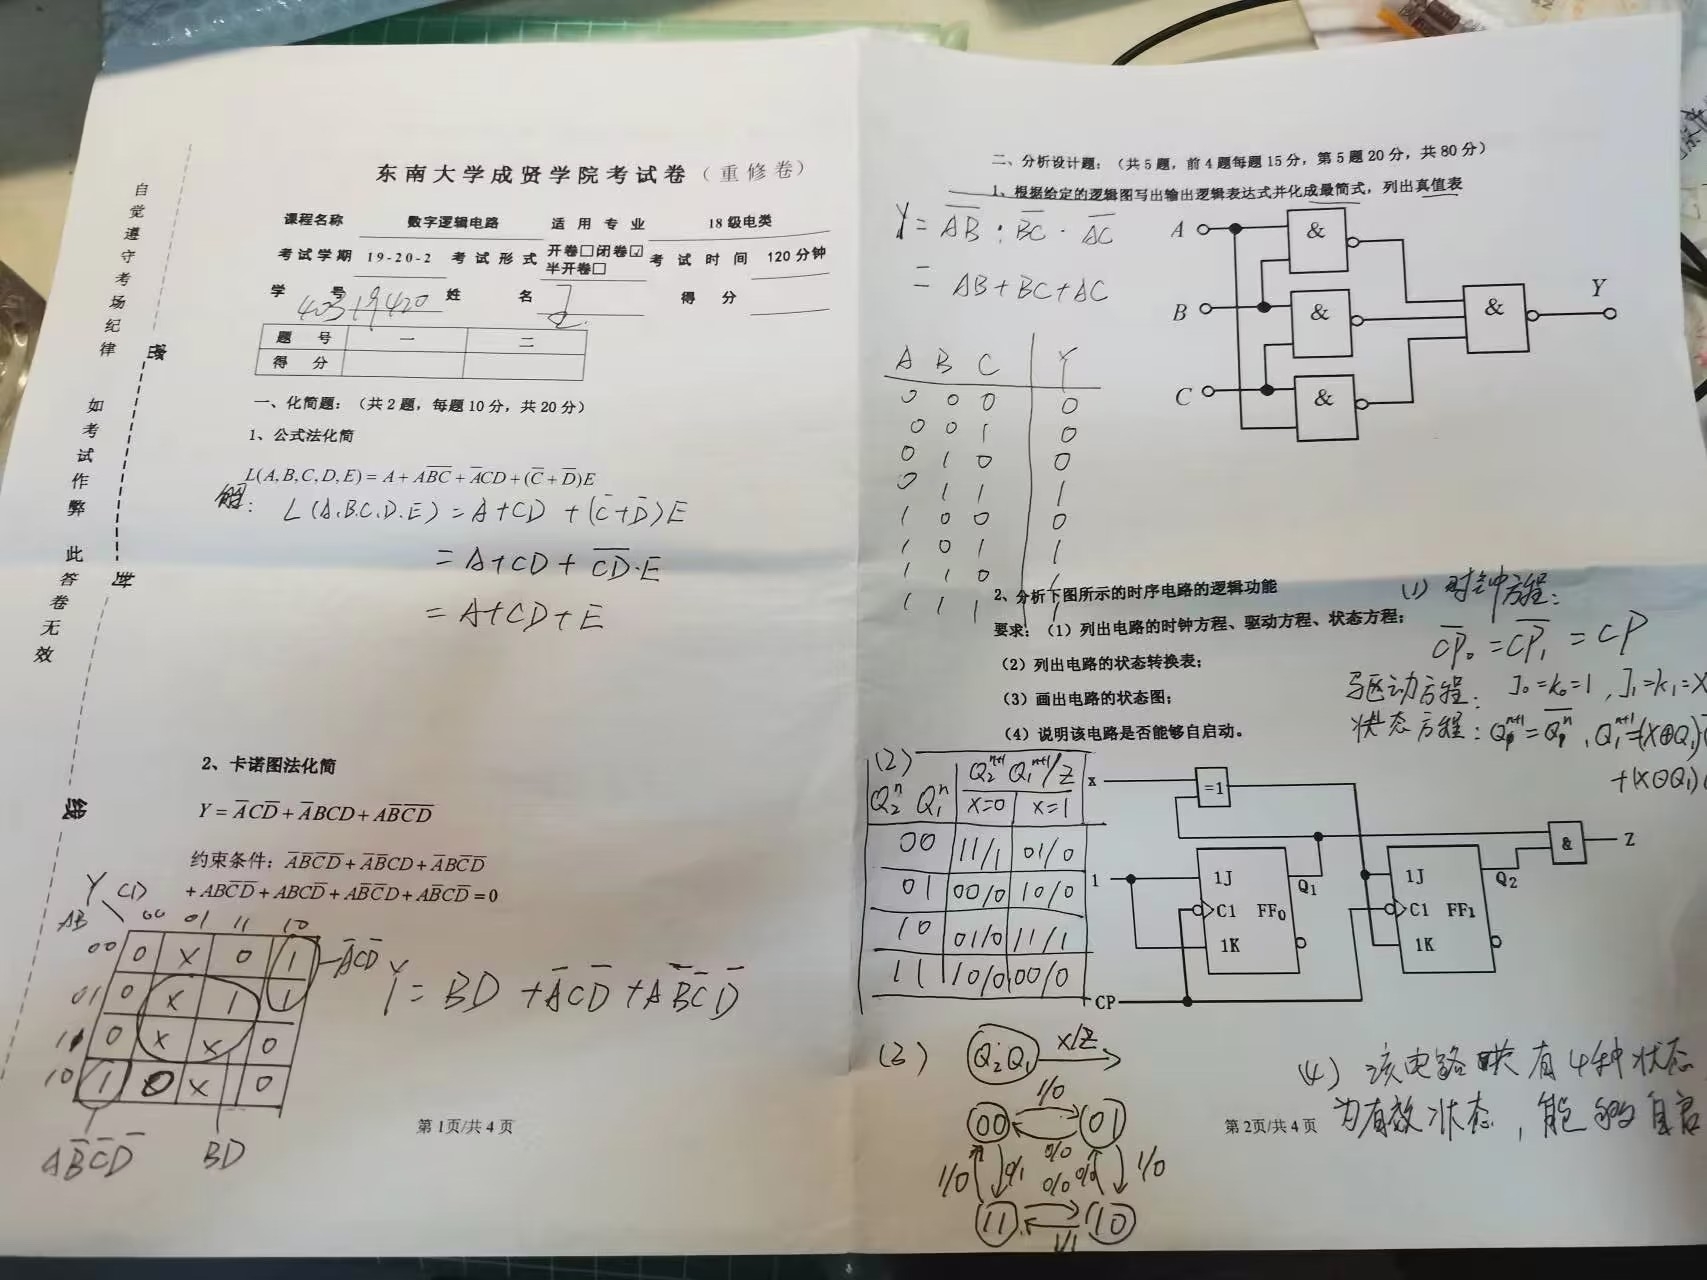 自觉遵守考场纪律 如考试作弊 此答卷无效
线
东南大学成贤学院考试卷（重修卷）
课程名称 数字逻辑电路 适用专业 18级电类
考试学期 19-20-2 考试形式 开卷□闭卷☑ 半开卷□ 考试时间 120分钟
学号 40319420 姓名 得分
题号 一 二
得分
一、化简题：（共2题，每题10分，共20分）
1、公式法化简
L(A,B,C,D,E) = A + AB̅C̅ + A̅CD + (C̅ + D̅)E
解: L(A.B.C.D.E) = A+CD + (C̅+D̅)E
= A+CD + C̅D̅·E
= A+CD+E
2、卡诺图法化简
Y = A̅CD̅ + A̅BCD + AB̅C̅D̅
约束条件：A̅B̅C̅D̅ + A̅BCD + A̅BC̅D̅
+ ABC̅D̅ + ABCD̅ + AB̅C̅D + AB̅CD̅ = 0
Y CD
AB 00 01 11 10
00 0 x 0 1 A̅CD̅
01 0 x 1 1
11 0 x x 0
10 1 0 x 0
Y = BD + A̅CD̅ + AB̅C̅D̅
AB̅C̅D̅ BD
第1页/共4页
二、分析设计题：（共5题，前4题每题15分，第5题20分，共80分）
1、根据给定的逻辑图写出输出逻辑表达式并化成最简式，列出真值表
Y = A̅B̅ · B̅C̅ · A̅C̅
= AB+BC+AC
A & 
B & & Y
C &
A B C Y
0 0 0 0
0 0 1 0
0 1 0 0
0 1 1 1
1 0 0 0
1 0 1 1
1 1 0 1
1 1 1 1
2、分析下图所示的时序电路的逻辑功能
要求：（1）列出电路的时钟方程、驱动方程、状态方程；
（2）列出电路的状态转换表；
（3）画出电路的状态图；
（4）说明该电路是否能够自启动。
(1) 时钟方程:
C̅P̅₀ = C̅P̅₁ = CP
驱动方程: J₀=k₀=1, J₁=k₁=X
状态方程:
(2)
Q₂ⁿ Q₁ⁿ Q₂ⁿ⁺¹ Q₁ⁿ⁺¹/Z
x=0 x=1
00 11/1 01/0
01 00/0 10/0
10 01/0 11/1
11 10/0 00/0
x =1
& Z
1 1J C1 1K FF₀ Q₁
1J C1 1K FF₁ Q₂
CP
(3) Q₂Q₁ X/Z
1/0
00 01
0/0
1/0 0/1 0/0 0/0 1/0
11 10
1/1
(4) 该电路共有4种状态
为有效状态, 能够自启
第2页/共4页